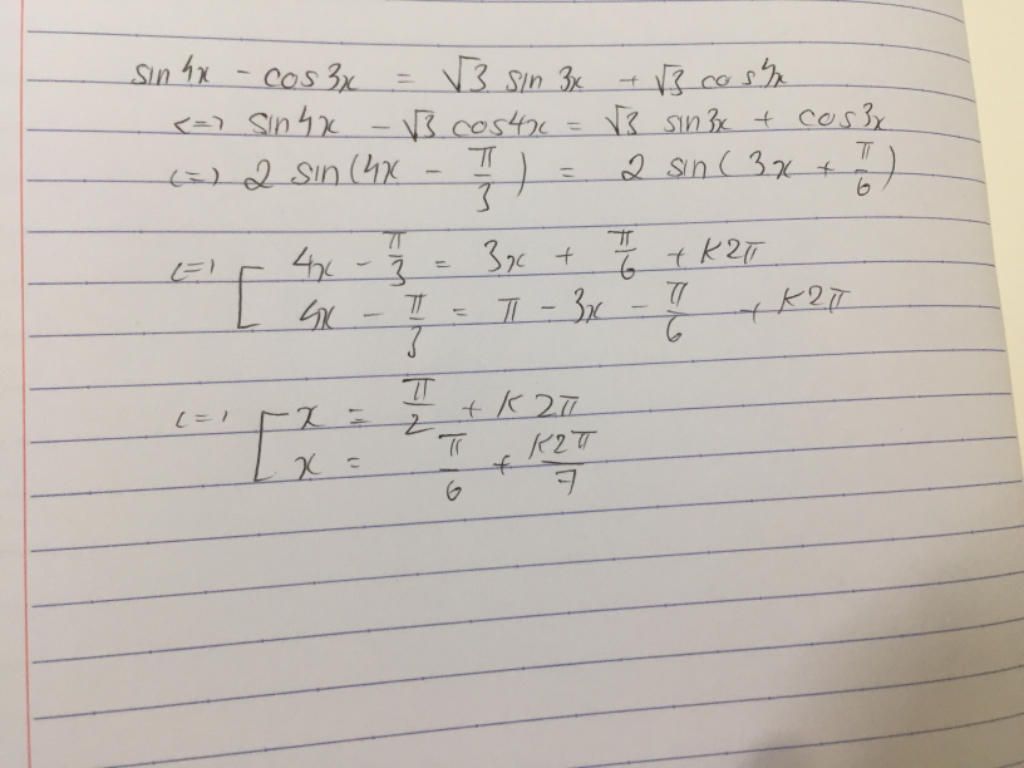 sin 4x - cos 3x = √3 sin 3x + √3 cos 4x
<=> sin 4x - √3 cos 4x = √3 sin 3x + cos 3x
<=> 2 sin(4x - π/3) = 2 sin(3x + π/6)
<=> [ 4x - π/3 = 3x + π/6 + k2π
4x - π/3 = π - 3x - π/6 + k2π
<=> [ x = π/2 + k2π
x = π/6 + k2π/7